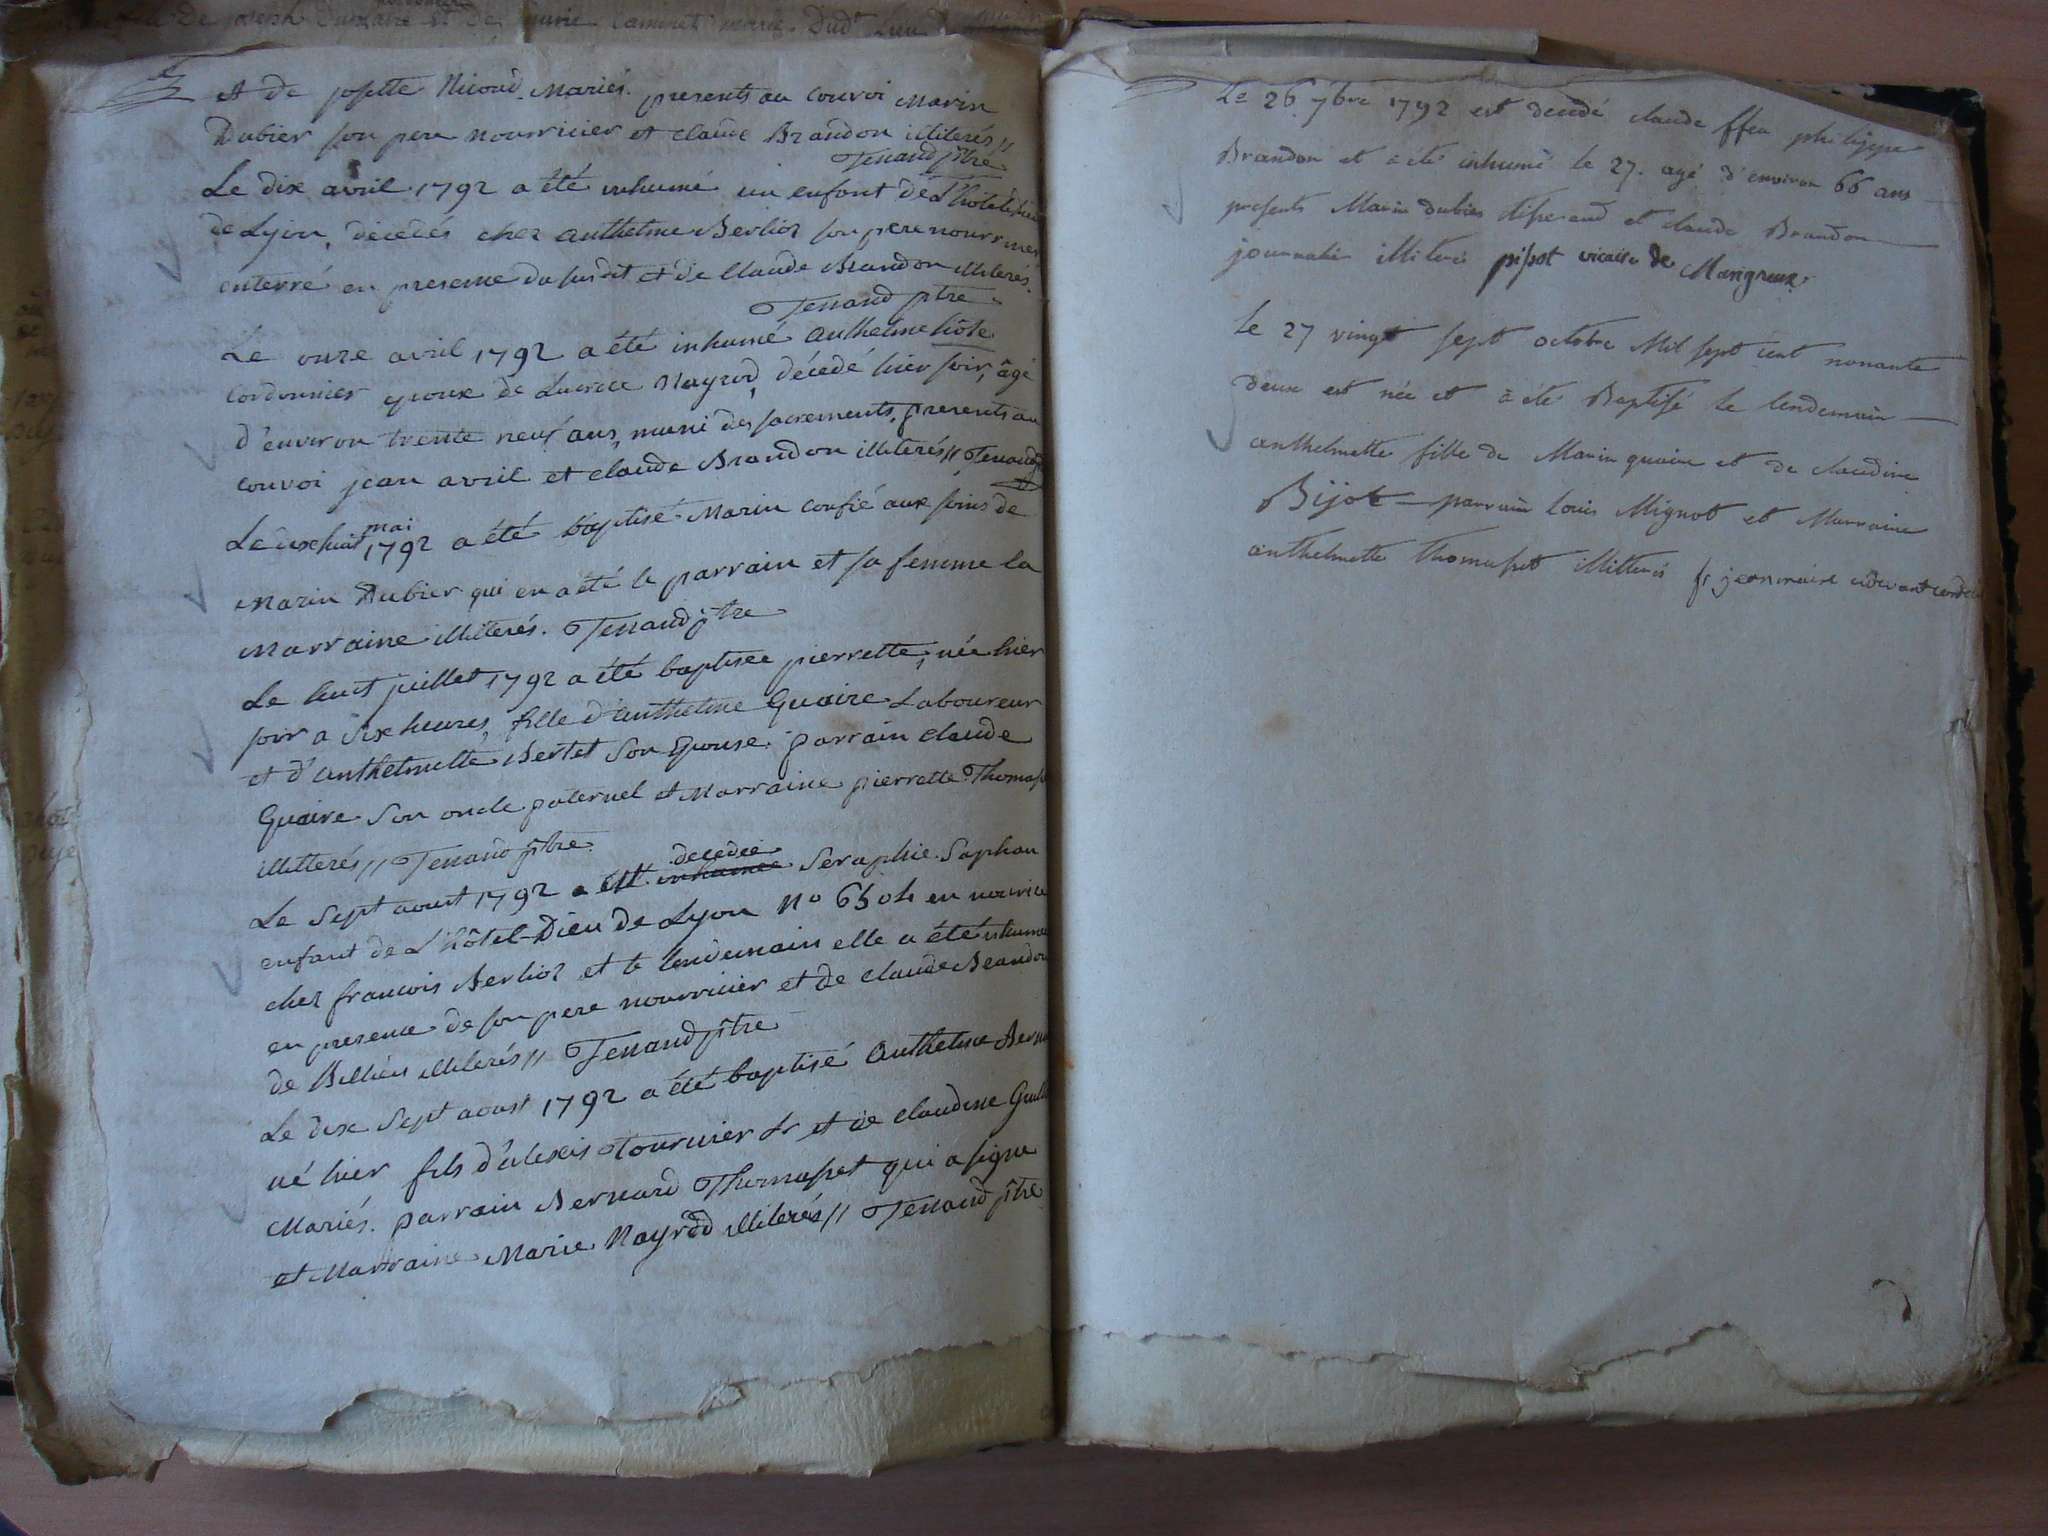 de joseph Dumaine et de marie Caminet mariés Dud. Lieu
et de josette Nicoud Mariés. presents au convoi Marin
Dubier son pere nourricier et claude Brandon illiterés //
Tenand ptre
Le dix avril 1792 a été inhumé un enfant de L'hôteldieu
de Lyon, décedés chez anthelme Berlioz son pere nourricier
enterré en presence du susdit et de Claude Brandon illiterés.
Tenand ptre
Le onze avril 1792 a été inhumé anthelme hôte
Cordonnier epoux de Lucrece Nayrod, décédé hier soir, âgé
d'environ trente neuf ans, muni des sacrements, presents au
convoi jean avril et claude Brandon illiterés // Tenand
mai
Le dixhuit 1792 a été baptisé Marin confié aux soins de
Marin Dubier qui en a été le parrain et sa femme la
Marraine illiterés. Tenand ptre
Le huit juillet 1792 a été baptisée pierrette, née hier
soir a six heures, fille d'anthelme Guaire Laboureur
et d'anthelmette Bertet son epouse. parrain claude
Guaire son oncle paternel et Marraine pierrette Thomass
illitterés // Tenand ptre
decedée
Le sept aoust 1792 a été inhumée Seraphie Saphau
enfant de L'hôtel-Dieu de Lyon No 6504 en nourrice
chez francois Berlioz et le lendemain elle a été inhumée
en presence de son pere nourricier et de claude Brandon
de Billieu illiterés // Tenand ptre
Le dix sept aoust 1792 a été baptisé anthelme Bern
né hier fils d'alexis Tournier Lr et de claudine Guill
Mariés. parrain Bernard Thomasset qui a signe
et Marraine Marie Nayrod illiterés // Tenand ptre
Le 26 7bre 1792 est decedé claude ffeu philippe
Brandon et a été inhumé le 27. agé d'environ 66 ans
presents Marin dubier tisserand et claude Brandon
journalier illiteres pissot vicaire de Marigneux
Le 27 vingt sept octobre Mil sept cent nonante
deux est née et a été Baptisé le lendemain
anthelmette fille de Marin quaire et de claudine
Bijot parrain louis Mignot et Marraine
anthelmette thomasset illitteres fr jeanmaire cidevant cordelier